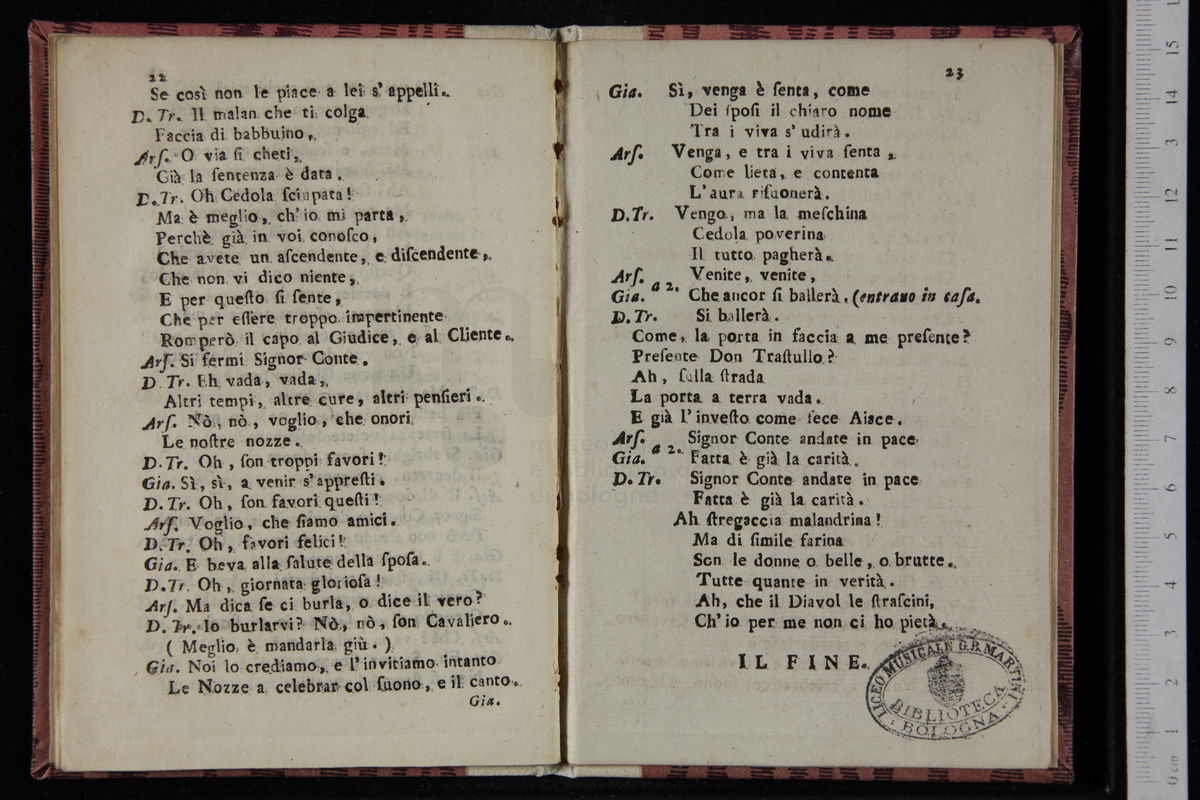 22
Se così non le piace a lei s' appelli.
D. Tr. Il malan che ti colga
Faccia di babbuino,
Arſ. O via ſi cheti,
Già la ſentenza è data.
D. Tr. Oh Cedola ſciupata!
Ma è meglio, ch' io mi parta,
Perchè già in voi conoſco,
Che avete un aſcendente, e diſcendente,
Che non vi dico niente,
E per queſto ſi ſente,
Che per eſſere troppo impertinente
Romperò il capo al Giudice, e al Cliente.
Arſ. Si fermi Signor Conte.
D. Tr. Eh vada, vada,
Altri tempi, altre cure, altri penſieri.
Arſ. Nò, nò, voglio, che onori
Le noſtre nozze.
D. Tr. Oh, ſon troppi favori!
Gia. Sì, sì, a venir s' appreſti.
D. Tr. Oh, ſon favori queſti!
Arſ. Voglio, che ſiamo amici.
D. Tr. Oh, favori felici!
Gia. E beva alla ſalute della ſpoſa.
D. Tr. Oh, giornata glorioſa!
Arſ. Ma dica ſe ci burla, o dice il vero?
D. Tr. Io burlarvi? Nò, nò, ſon Cavaliero.
( Meglio è mandarla giù. )
Gia. Noi lo crediamo, e l' invitiamo intanto
Le Nozze a celebrar col ſuono, e il canto.
Gia.
23
Gia. Sì, venga è ſenta, come
Dei ſpoſi il chiaro nome
Tra i viva s' udirà.
Arſ. Venga, e tra i viva ſenta,
Come lieta, e contenta
L' aura riſuonerà.
D. Tr. Vengo, ma la meſchina
Cedola poverina
Il tutto pagherà.
Arſ. Venite, venite,
Gia. a 2. Che ancor ſi ballerà. (entrano in caſa.
D. Tr. Si ballerà.
Come, la porta in faccia a me preſente?
Preſente Don Traſtullo?
Ah, ſulla ſtrada
La porta a terra vada.
E già l' inveſto come fece Aiace.
Arſ. Signor Conte andate in pace
Gia. a 2. Fatta è già la carità.
D. Tr. Signor Conte andate in pace
Fatta è già la carità.
Ah ſtregaccia malandrina!
Ma di ſimile farina
Son le donne o belle, o brutte.
Tutte quante in verità.
Ah, che il Diavol le ſtraſcini,
Ch' io per me non ci ho pietà.
IL FINE.
LICEO MUSICALE G.B. MARTINI
BIBLIOTECA
BOLOGNA
0 cm 1 2 3 4 5 6 7 8 9 10 11 12 13 14 15